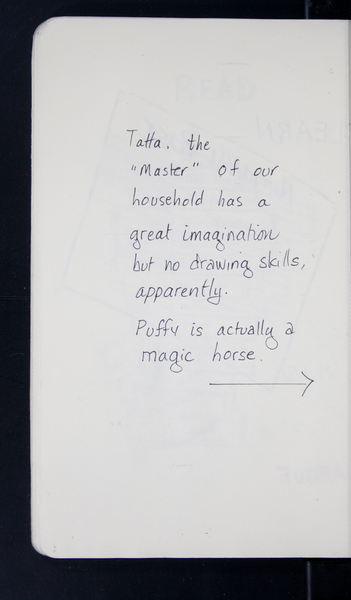 Tatta. the
"Master" of our
household has a
great imagination
but no drawing skills,
apparently.
Puffy is actually a
magic horse.
READ
LEARN